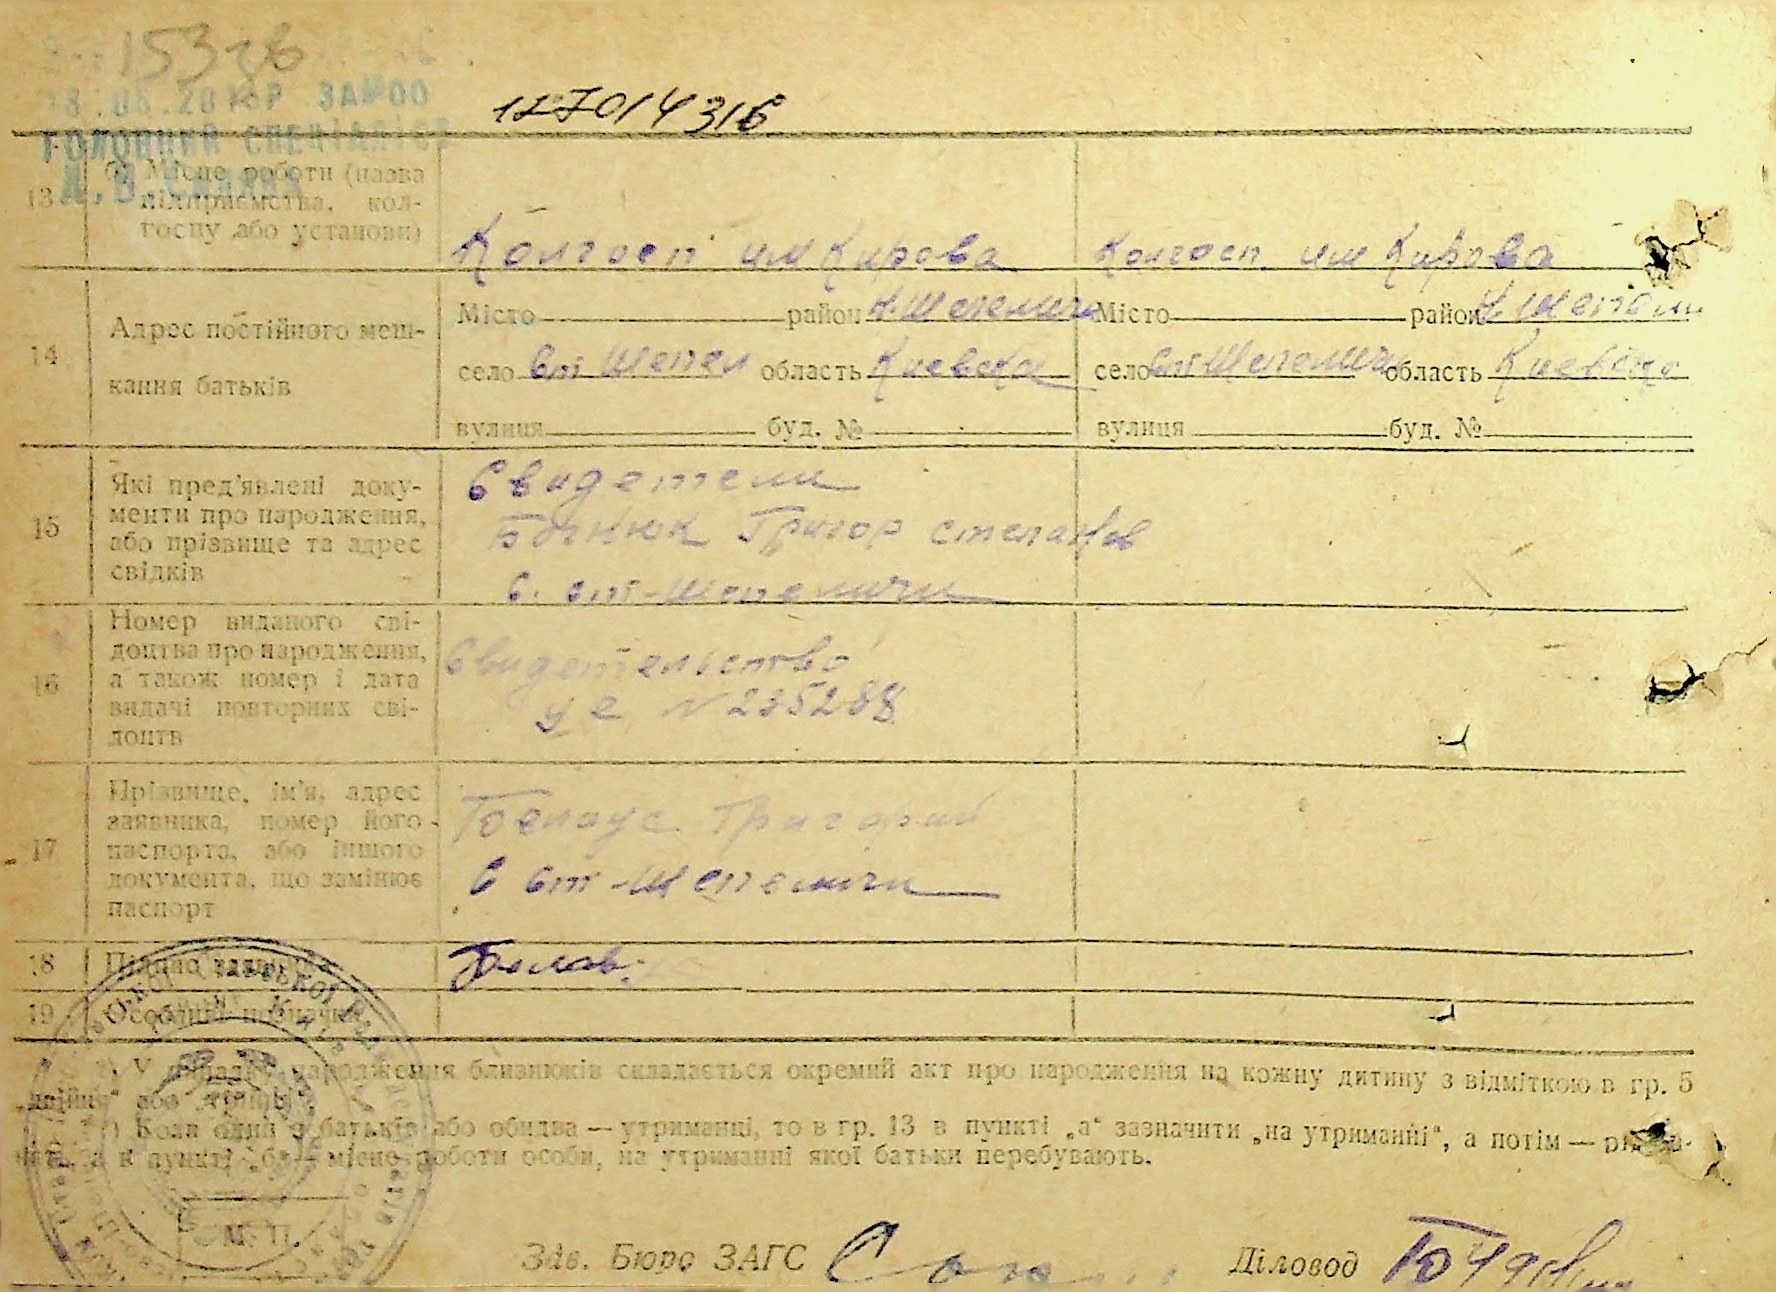 153 зв
ЗАМ00
127014316
ГОЛОВНИЙ СПЕЦІАЛІСТ
13
б) Місце роботи (назва
підприємства, кол-
госпу або установи)
Колгосп им Кирова Колгосп им Кирова
14
Адрес постійного меш-
кання батьків
Місто район Н.Шепеличи Місто район
село Ст Шепел область Киевска село Ст Шепеличи область Киевска
вулиця буд. № вулиця буд. №
15
Які пред'явлені доку-
менти про народження,
або прізвище та адрес
свідків
Свидетели
Григор Степанов
с. Ст-Шепеличи
16
Номер виданого сві-
доцтва про народження,
а також номер і дата
видачі повторних сві-
доцтв
Свидетельство
уе N 235288
17
Прізвище, ім'я, адрес
заявника, номер його
паспорта, або іншого
документа, що замінює
паспорт
Григорий
с Ст-Шепеличи
18 Підпис
19 Особливі
V випадку народження близнюків складається окремий акт про народження на кожну дитину з відміткою в гр. 5
„двійня“ або „трійня“.
Коли один з батьків або обидва — утриманці, то в гр. 13 в пункті „а“ зазначити „на утриманні“, а потім —
в пункті „б“ — місце роботи особи, на утриманні якої батьки перебувають.
М. П.
Зав. Бюро ЗАГС Діловод